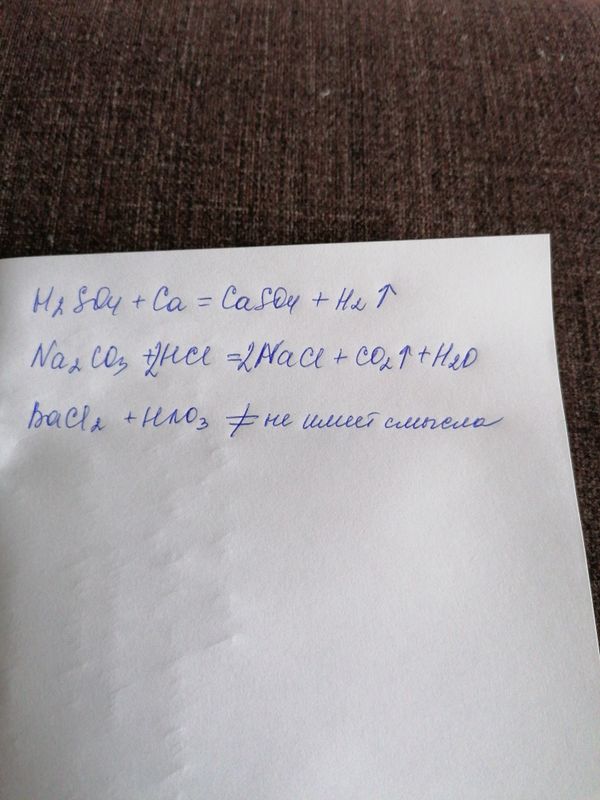 H2SO4 + Ca = CaSO4 + H2↑
Na2CO3 + 2HCl = 2NaCl + CO2↑ + H2O
BaCl2 + HNO3 ≠ не имеет смысла